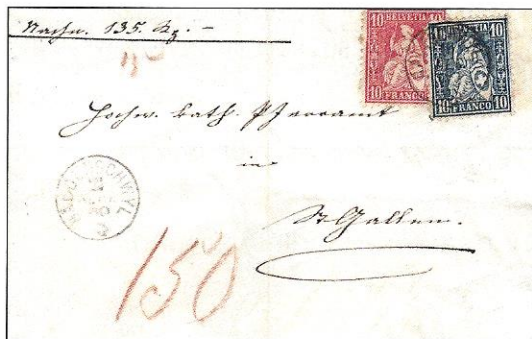 Nachn. 135. Rp. –
10 HELVETIA 10
10 FRANCO 10
10 HELVETIA 10
10 FRANCO 10
15
Hochw. kath. Pfarramt
in
St. Gallen.
150